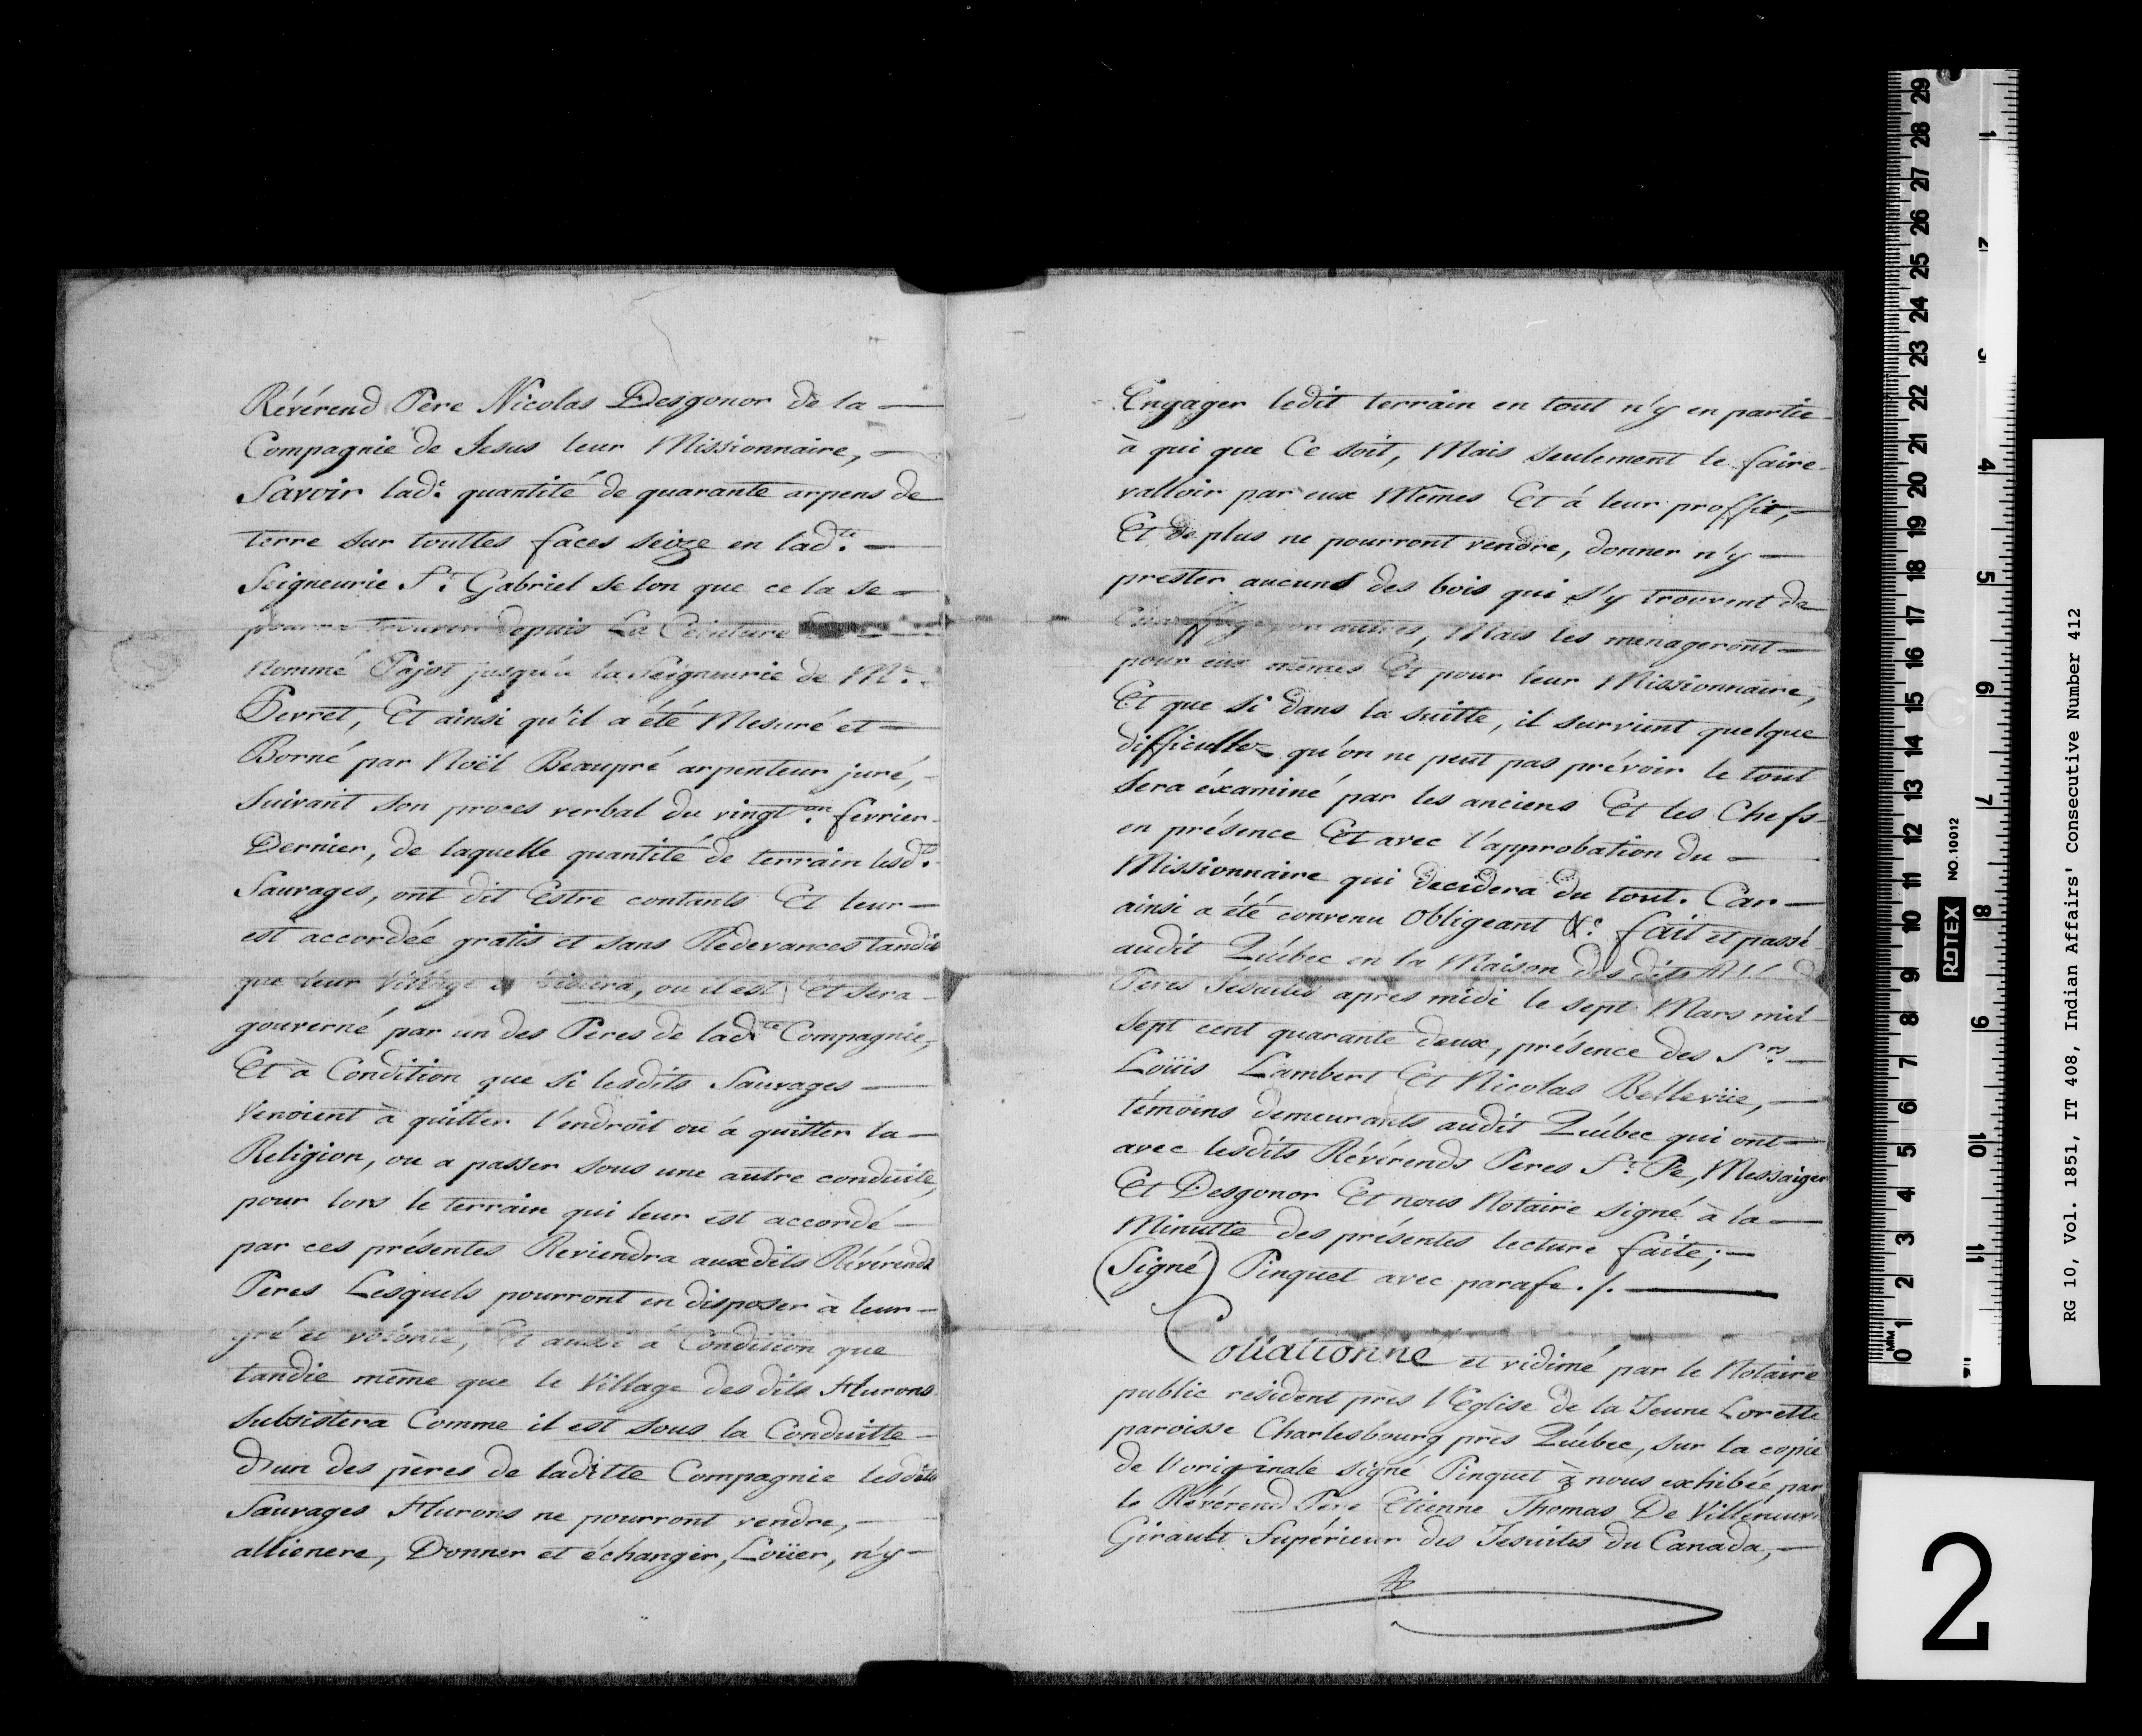 Révérend Pere Nicolas Desgonor de la —
Compagnie de Jesus leur Missionnaire, —
Savoir lad.e quantité de quarante arpens de
terre sur touttes faces seize en lad.te —
Seigneurie S.t Gabriel selon que ce la se —
pourra trouver depuis La Ceinture
Nommé Pajot jusqu'à la Seigneurie de Mr. —
Pevret, Et ainsi qu'il a été Mesuré et —
Borné par Noël Beaupré arpenteur juré, —
Suivant son proces verbal du vingt.un fevrier
Dernier, de laquelle quantité de terrain lesd.ts
Sauvages, ont dit Estre contants Et leur —
est accordée gratis et sans Redevances tandis
que leur Village subsistera, ou il est, Et sera —
gouverné par un des Peres de lad.te Compagnie,
Et à Condition que si lesdits Sauvages —
Venoient à quitter l'endroit ou à quitter la —
Religion, ou a passer sous une autre conduite,
pour lors le terrain qui leur est accordé —
par ces présentes Reviendra auxdits Révérends
Peres Lesquels pourront en disposer à leur —
gré et volonté, Et aussi à Condition que
tandie même que le Village des dits Hurons
Subsistera Comme il est sous la Conduitte —
d'un des pères de laditte Compagnie lesdits
Sauvages Hurons ne pourront vendre, —
allienere, Donner et échanger, Loüer, n'y —
Engager ledit terrain en tout n'y en partie
à qui que Ce soit, Mais seulement le faire
valloir par eux Mêmes Et à leur proffit, —
Et de plus ne pourront vendre, donner n'y —
prester aucuns des bois qui s'y trouvent de
Chauffage, ou autres, Mais les menageront —
pour eux mêmes Et pour leur Missionnaire,
Et que si dans la suitte, il survient quelque
difficultez qu'on ne peut pas prévoir le tout
Sera éxaminé par les anciens Et les Chefs
en présence Et avec l'approbation du —
Missionnaire qui decidera du tout. Car —
ainsi a été convenu Obligeant &c. fait et passé
audit Québec en la Maison des dits
Peres Jesuites apres midi le sept Mars mil
Sept cent quarante deux, présence des S.rs —
Loüis Lambert Et Nicolas Bellevüe, —
témoins demeurants audit Québec qui ont —
avec lesdits Révérends Peres S.t Pe, Messaiger
Et Desgonor Et nous Notaire signé à la —
Minutte des présentes lecture faite; —
(Signé) Pinquet avec parafe ./. —
Collationné et vidimé par le Notaire
public resident près l'Eglise de la Jeune Lorette
paroisse Charlesbourg près Québec, sur la copie
de l'originale signé Pinquet à nous exhibée par
le Révérend Pere Etienne Thomas De Villeneuve
Girault Supérieur des Jesuites du Canada, —
RG 10, Vol. 1851, IT 408, Indian Affairs' Consecutive Number 412
2
REDTEX NO. 10012
MM 0 1 2 3 4 5 6 7 8 9 10 11 12 13 14 15 16 17 18 19 20 21 22 23 24 25 26 27 28 29
1 2 3 4 5 6 7 8 9 10 11